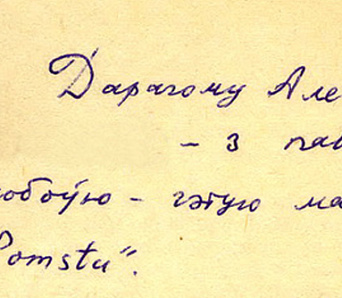 Дарагому Але
- з па
любоўю - гэтую ма
Pomstu".